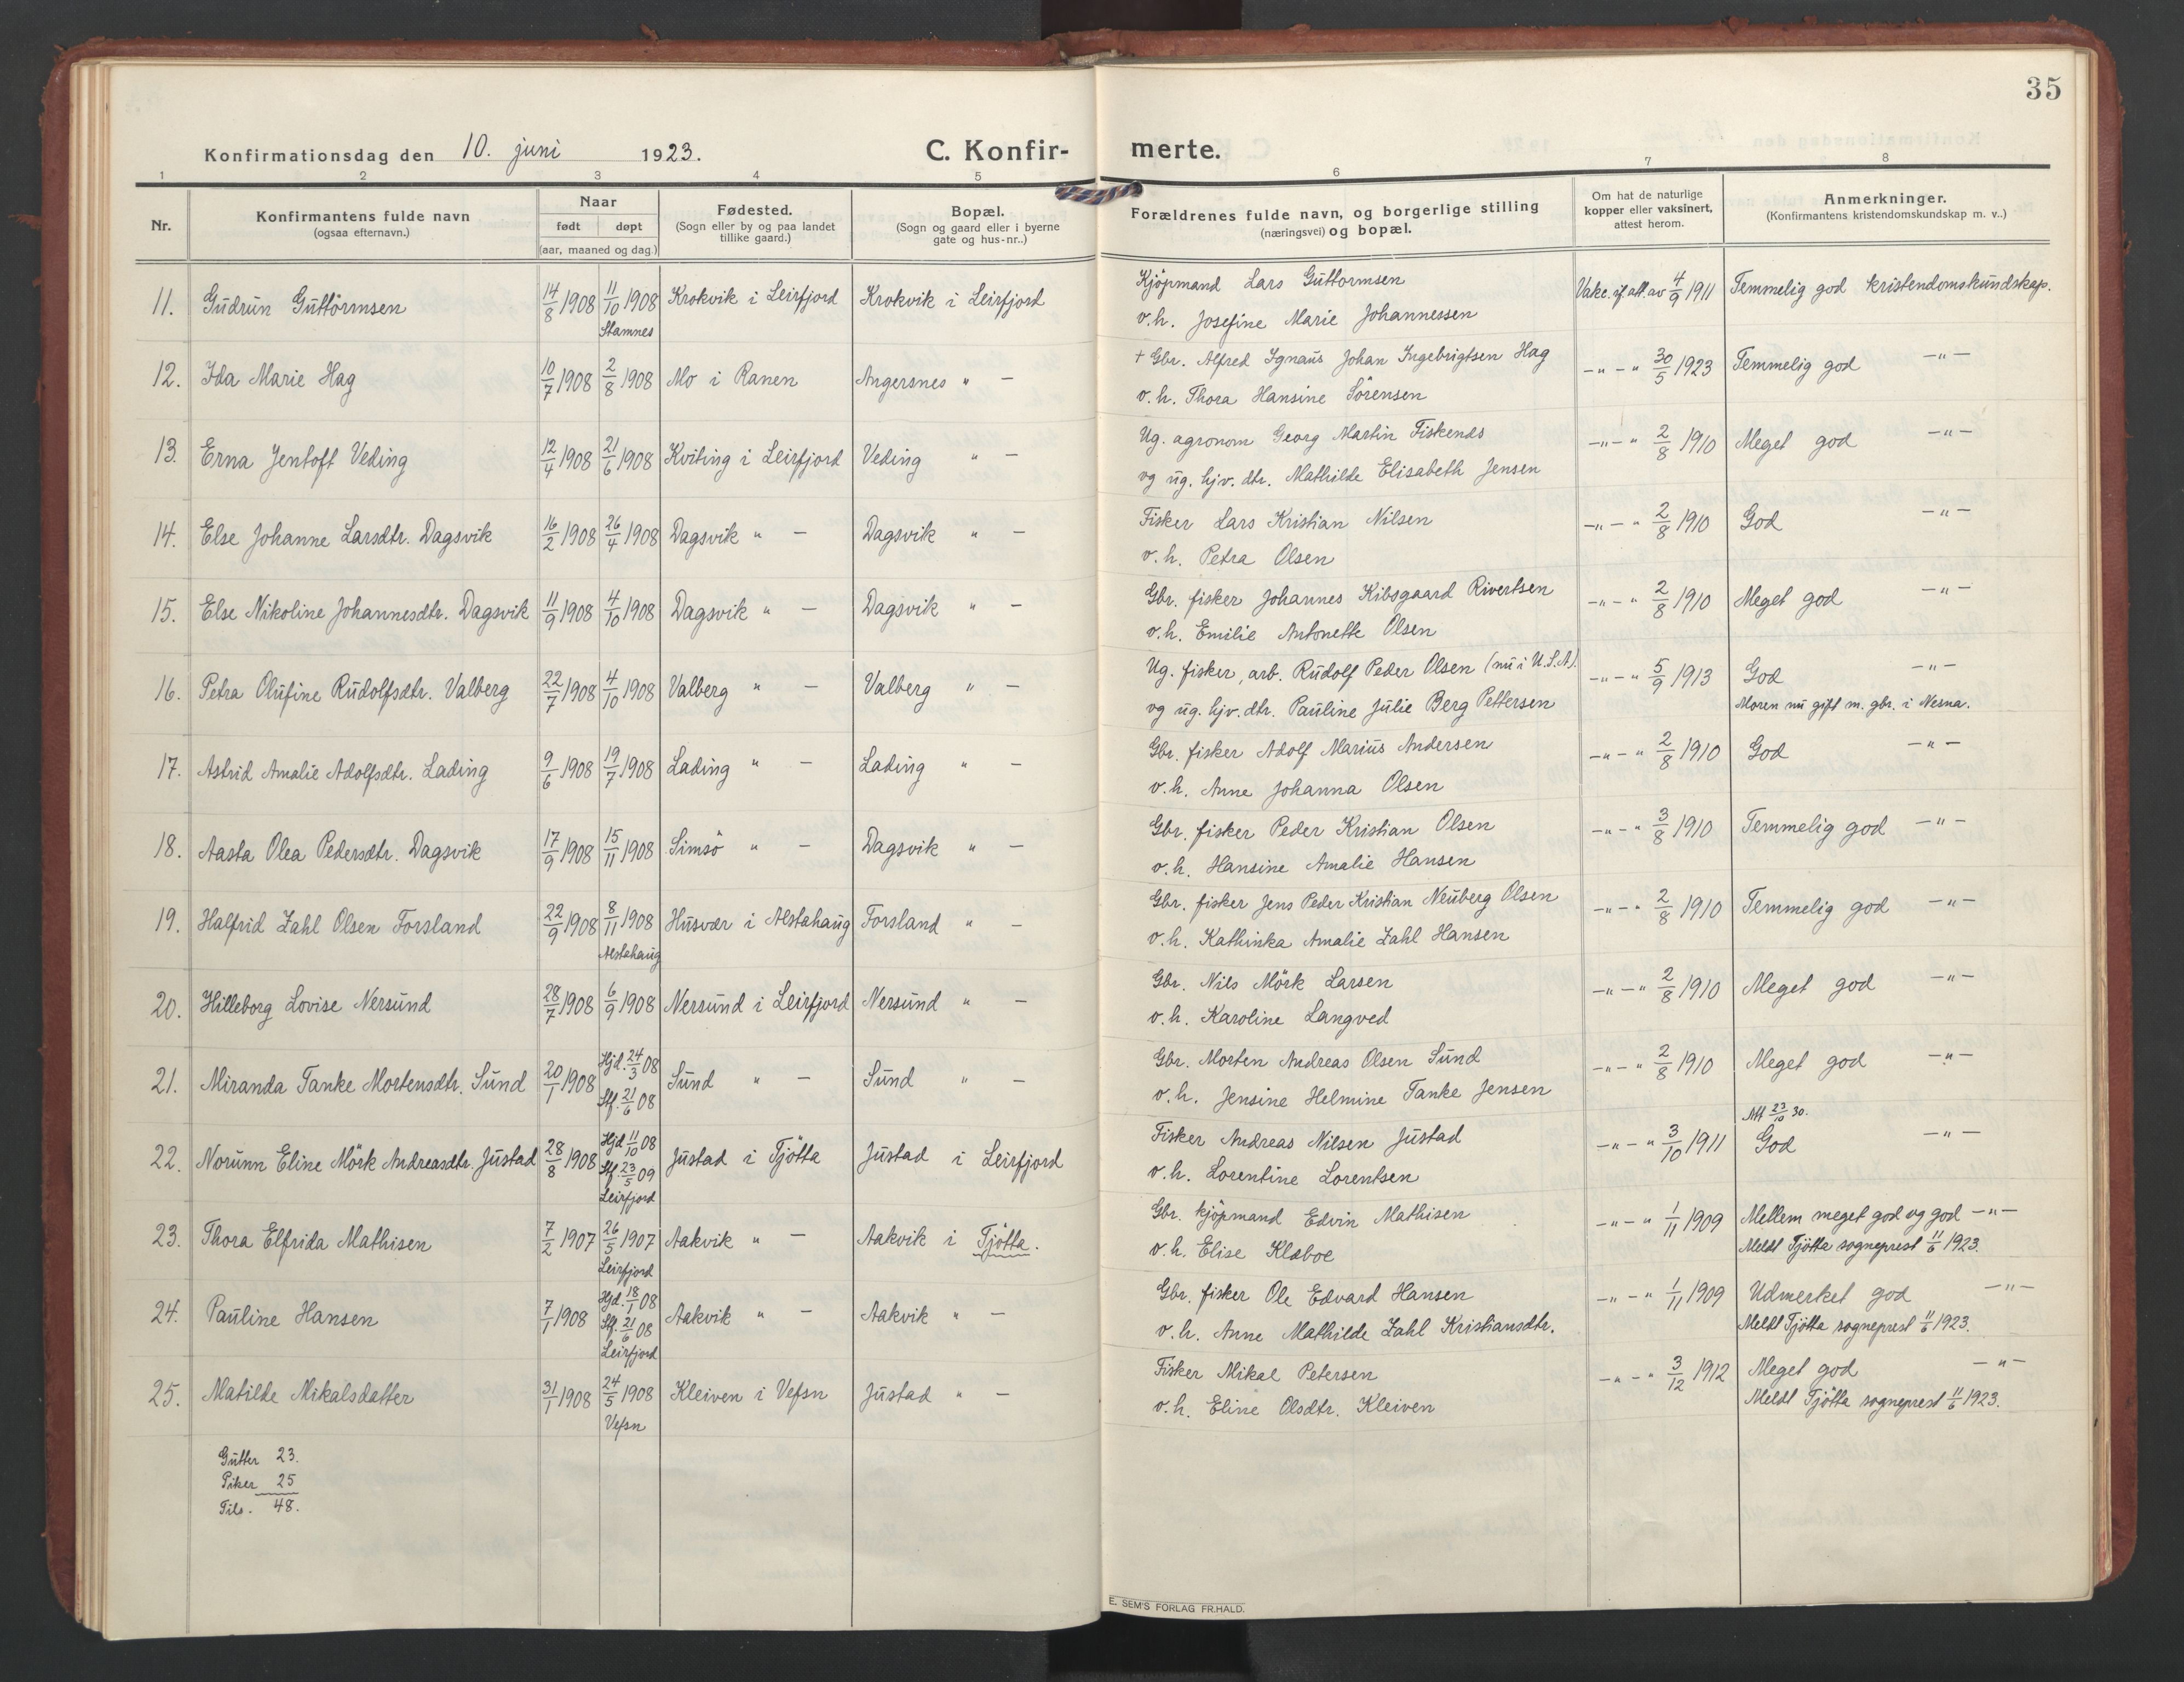 35
Konfirmationsdag den 10. juni 1923. C. Konfirmerte.
1 2 3 4 5 6 7 8
Nr. | Konfirmantens fulde navn (ogsaa efternavn.) | Naar født døpt (aar, maaned og dag.) | Fødested. (Sogn eller by og paa landet tillike gaard.) | Bopæl. (Sogn og gaard eller i byerne gate og hus-nr..) | Forældrenes fulde navn, og borgerlige stilling (næringsvei) og bopæl. | Om hat de naturlige kopper eller vaksinert, attest herom. | Anmerkninger. (Konfirmantens kristendomskundskap m. v..)
11. Gudrun Guttormsen 14/8 1908 11/10 1908 Stamnes Krokvik i Leirfjord Krokvik i Leirfjord Kjöpmand Lars Guttormsen
v. h. Josefine Marie Johannessen Vakc. if. att. av 4/9 1911 Temmelig god kristendomskundskap.
12. Ida Marie Hag 10/7 1908 2/8 1908 Mo i Ranen Angersnes " — + Gbr. Alfred Ignaus Johan Ingebrigtsen Hag
v. h. Thora Hansine Sörensen —"—" 30/5 1923 Temmelig god —"—
13. Erna Jentoft Veding 12/4 1908 21/6 1908 Kviting i Leirfjord Veding " — Ug. agronom Georg Martin Fiskends
og ug. hjv. dtr. Mathilde Elisabeth Jensen —"—" 2/8 1910 Meget god —"—
14. Else Johanne Larsdtr. Dagsvik 16/2 1908 26/4 1908 Dagsvik " — Dagsvik " — Fisker Lars Kristian Nilsen
v. h. Petra Olsen —"—" 2/8 1910 God —"—
15. Else Nikoline Johannesdtr. Dagsvik 11/9 1908 4/10 1908 Dagsvik " — Dagsvik " — Gbr. fisker Johannes Kibsgaard Rivertsen
v. h. Emilie Antonette Olsen —"—" 2/8 1910 Meget god —"—
16. Petra Olufine Rudolfsdtr. Valberg 22/7 1908 4/10 1908 Valberg " — Valberg " — Ug. fisker, arb. Rudolf Peder Olsen (nu i U.S.A).
og ug. hjv. dtr. Pauline Julie Berg Pettersen —"—" 5/9 1913 God —"—
Moren nu gift m. gbr. i Nesna.
17. Astrid Amalie Adolfsdtr. Lading 9/6 1908 19/7 1908 Lading " — Lading " — Gbr. fisker Adolf Marius Andersen
v. h. Anne Johanna Olsen —"—" 2/8 1910 God —"—
18. Aasta Olea Pedersdtr. Dagsvik 17/9 1908 15/11 1908 Simsö " — Dagsvik " — Gbr. fisker Peder Kristian Olsen
v. h. Hansine Amalie Hansen —"—" 3/8 1910 Temmelig god —"—
19. Halfrid Zahl Olsen Forsland 22/9 1908 8/11 1908 Alstahaug Husvær i Alstahaug Forsland " — Gbr. fisker Jens Peder Kristian Neuberg Olsen
v. h. Kathinka Amalie Zahl Hansen —"—" 2/8 1910 Temmelig god —"—
20. Hilleborg Lovise Nersund 28/7 1908 6/9 1908 Nersund i Leirfjord Nersund " — Gbr. Nils Mörk Larsen
v. h. Karoline Langved —"—" 2/8 1910 Meget god —"—
21. Miranda Tanke Mortensdtr. Sund 20/1 1908 Hjd. 24/3 08 Stf. 21/6 08 Sund " — Sund " — Gbr. Morten Andreas Olsen Sund
v. h. Jensine Helmine Tanke Jensen —"—" 2/8 1910 Meget god —"—
22. Norunn Eline Mörk Andreasdtr. Justad 28/8 1908 Hjd 11/10 08 Stf. 23/5 09 Leirfjord Justad i Tjötta Justad i Leirfjord Fisker Andreas Nilsen Justad
v. h. Lorentine Lorentsen —"—" 3/10 1911 Att 23/10 30. God —"—
23. Thora Elfrida Mathisen 7/2 1907 26/5 1907 Leirfjord Aakvik " — Aakvik i Tjötta. Gbr. kjöpmand Edvin Mathisen
v. h. Elise Klæboe —"—" 1/11 1909 Mellem meget god og god —"—
Meldt Tjötta sogneprest 11/6 1923.
24. Pauline Hansen 7/1 1908 Hjd. 18/1 08 Stf. 21/6 08 Leirfjord Aakvik " — Aakvik " — Gbr. fisker Ole Edvard Hansen
v. h. Anne Mathilde Zahl Kristiansdtr. —"—" 1/11 1909 Udmerket god —"—
Meldt Tjötta sogneprest 11/6 1923.
25. Matilde Mikalsdatter 31/1 1908 24/5 1908 Vefsn Kleiven i Vefsn Justad " — Fisker Mikal Petersen
v. h. Eline Olsdtr. Kleiven —"—" 3/12 1912 Meget god —"—
Meldt Tjötta sogneprest 11/6 1923.
Gutter 23.
Piker 25
Tils. 48.
E. SEM'S FORLAG FR.HALD.